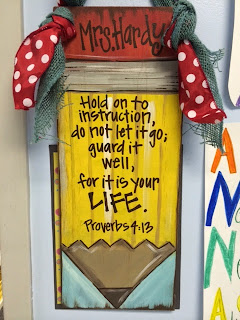 Mrs. Hardy
Hold on to
instruction,
do not let it go;
guard it
well,
for it is your
LIFE.
Proverbs 4:13
A
N
N
A